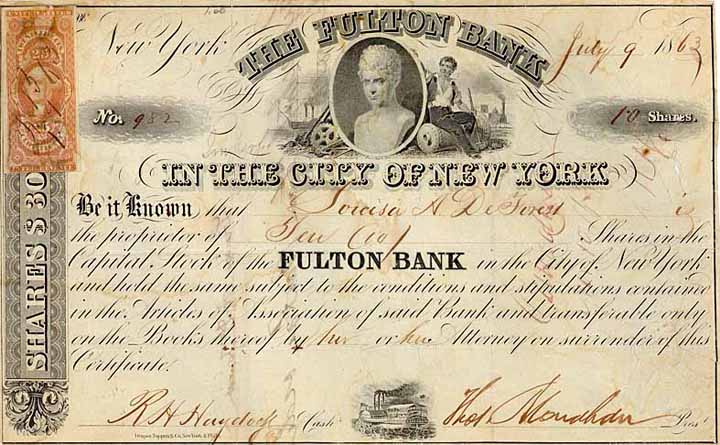 THE FULTON BANK
New York July 9 1863
No. 982 10 Shares.
IN THE CITY OF NEW YORK
Be it Known that A. De Forest is
the proprietor of Ten (10) Shares in the
Capital Stock of the FULTON BANK in the City of New York
and held the same subject to the conditions and stipulations contained
in the Articles of Association of said Bank and transferable only
on the Books thereof by her or her Attorney on surrender of this
Certificate.
SHARES $ 30
R H Haydock Cash Thos Monahan Pres